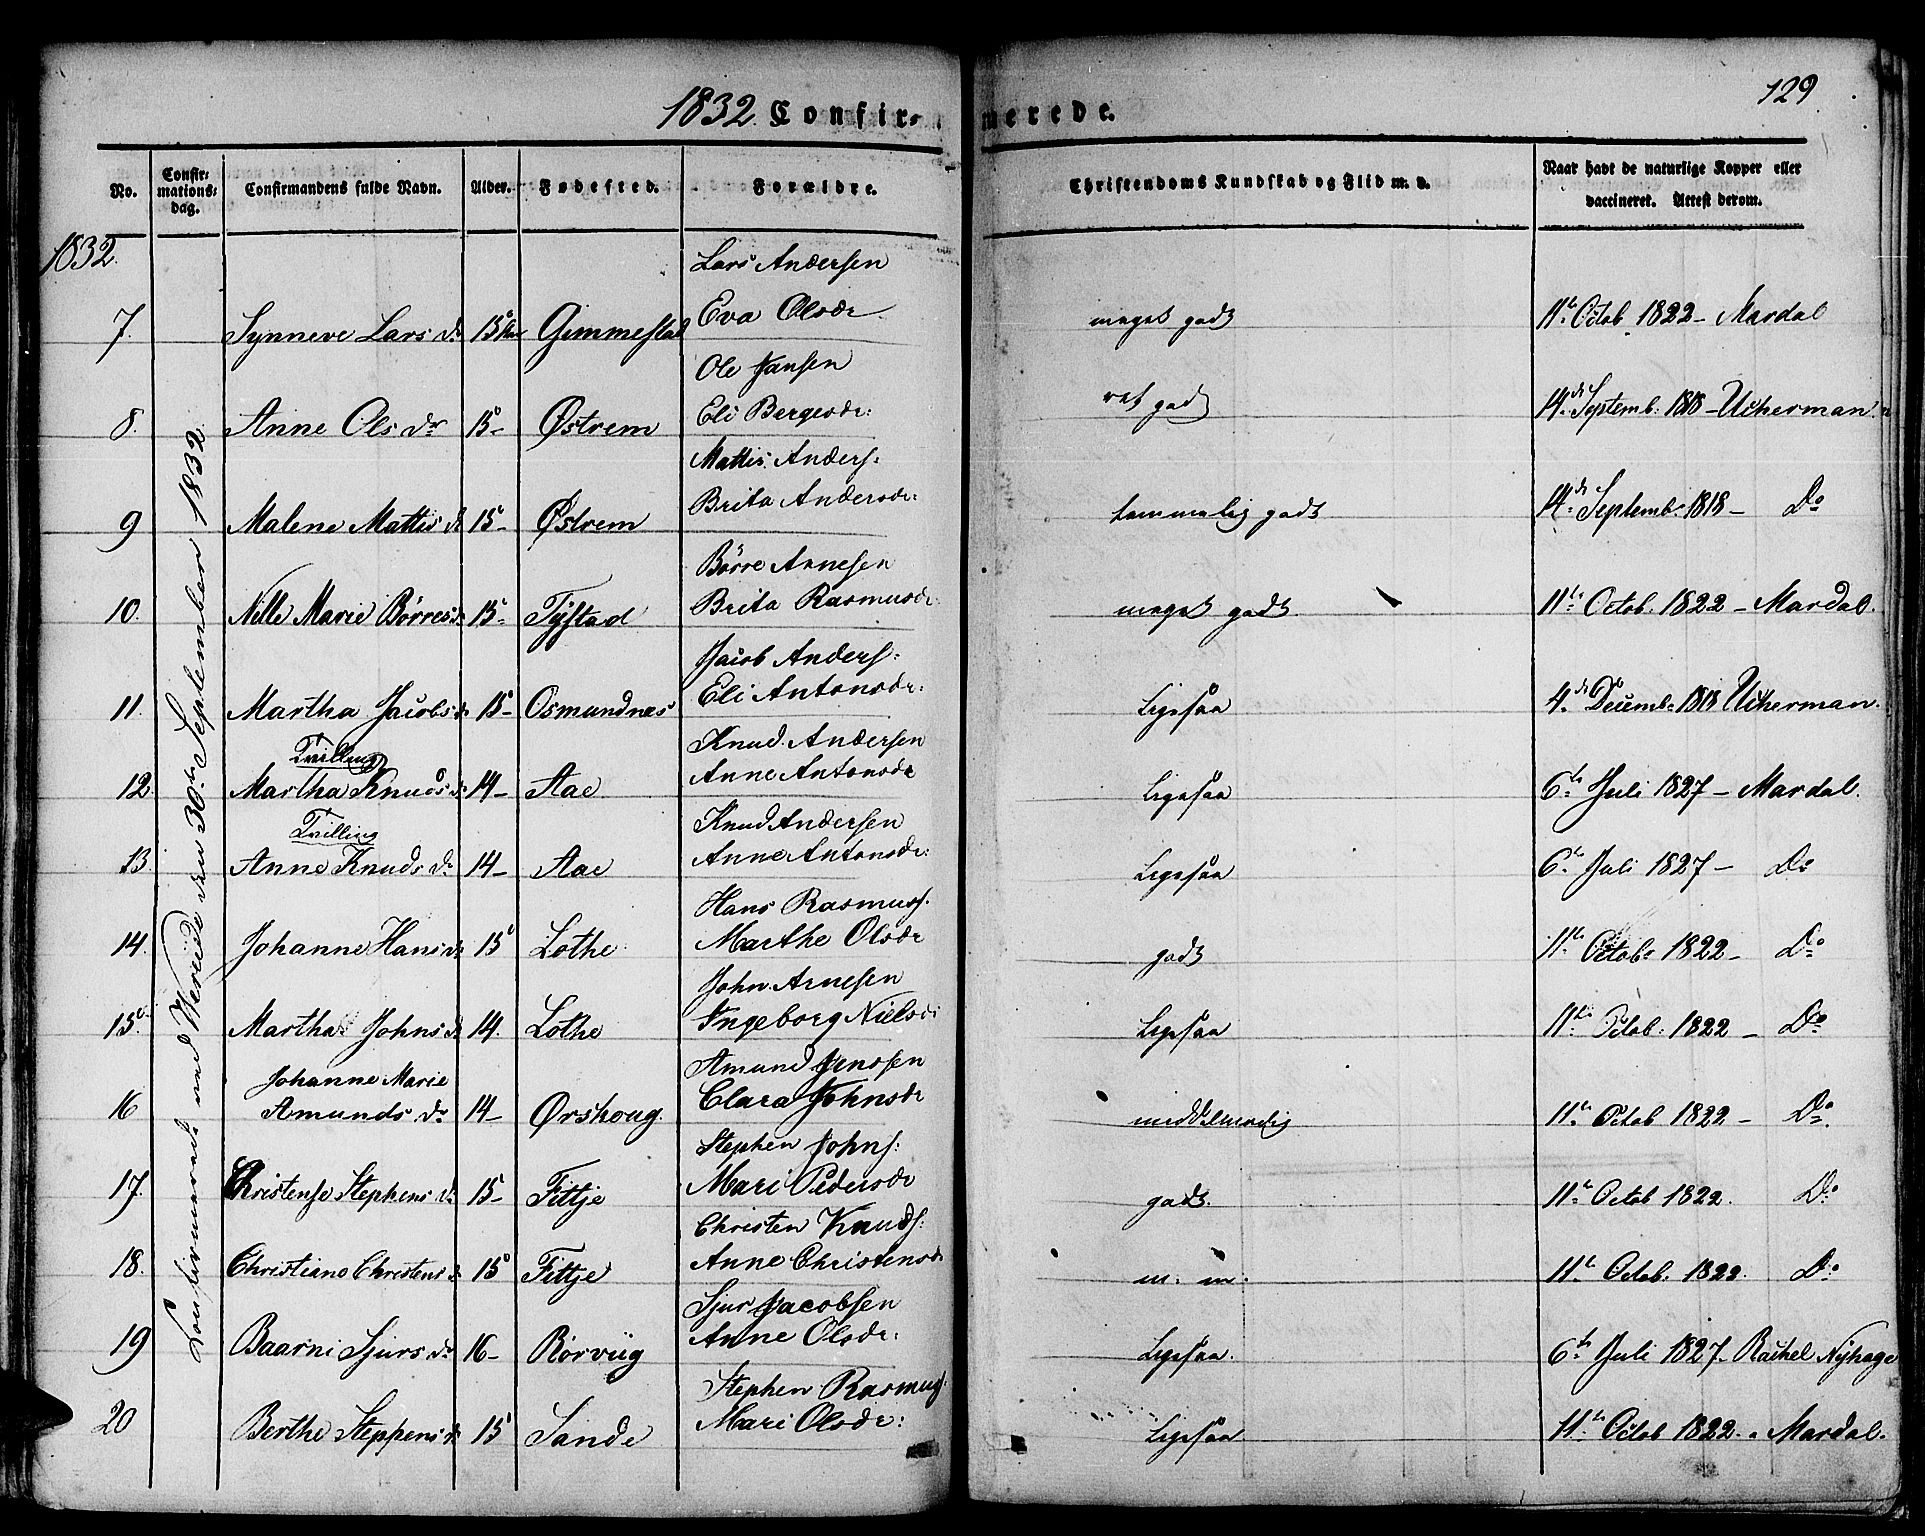 129
1832 Confirmerede.
No. Confirmationsdag. Confirmandens fulde Navn. Alder. Fødested. Forældre. Christendoms Kundskab og Flid m. v. Naar havt de naturlige Kopper eller vaccineret. Attest derom.
1832.
Confirmerede ved Wereide den 30te September 1832.
Lars Andersen
7. Synneve Lars dr 15 Gimmestad Eva Olsdr meget godt 11te Octob 1822 - Mardal
Ole Jansen
8. Anne Ols dr 15 - Østrem Eli Bergesdr: ret godt 14de Septemb: 1818 - Ucherman
Mattis Anders:
9 Malene Mattis dr 15 - Østrem Brita Andersdr: temmelig godt 14de Septemb: 1818 - Do
Børre Annesen
10. Nille Marie Børres dr 15 - Tystad Brita Rasmusdr: meget godt 11te Octob. 1822 - Mardal.
Jacob Anders:
11. Martha Jacobs dr 15 - Osmundnes Eli Antonsdr: Ligesaa 4de Decemb: 1818 Ucherman.
Tvilling Knud Andersen
12. Martha Knuds dr 14 - Aae Anne Antonsdr Ligesaa 6te Juli 1827 - Mardal.
Tvilling Knud Andersen
13. Anne Knuds dr 14 - Aae Anne Antonsdr: Ligesaa 6te Juli 1827 - Do
Hans Rasmuss.
14. Johanne Hans dr 15 Lothe Marthe Olsdr godt 11te Octob: 1822 - Do
John Arnesen
15. Martha Johns dr 14. Lothe Ingeborg Nielsdr Ligesaa 11te Octob: 1822 - Do
Johanne Marie Amund Jensen
16 Amunds dr 14 - Ørshoug. Clara Johnsdr middelmaadig 11te Octob 1822 - Do.
Stephen Johns:
17. Christense Stephens dr 15 - Fittje Mari Pedersdr godt. 11te Octob 1822. Do
Christen Knuds:
18. Christiane Christens dr 15 Fittje Anne Christensdr m. m. 11te Octob. 1822. Do
Sjur Jacobsen
19 Baarni Sjurs dr 16 - Rørviig Anne Olsdr: Ligesaa. 6te Juli 1827. Rachel Nyhage
Stephen Rasmus:
20 Berthe Steppens dr 15 Sande Mari Olsdr: Ligesaa 11te Octob 1822. - Mardal.